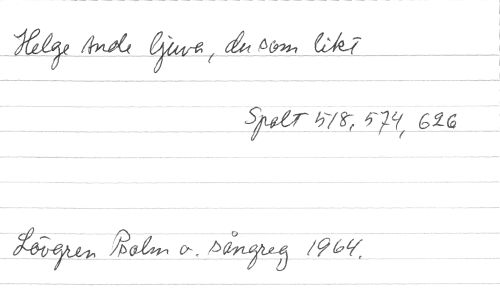 Helge Ande ljuva, du som likt
Spalt 518, 574, 626
Lövgren Psalm o. sångreg 1964.